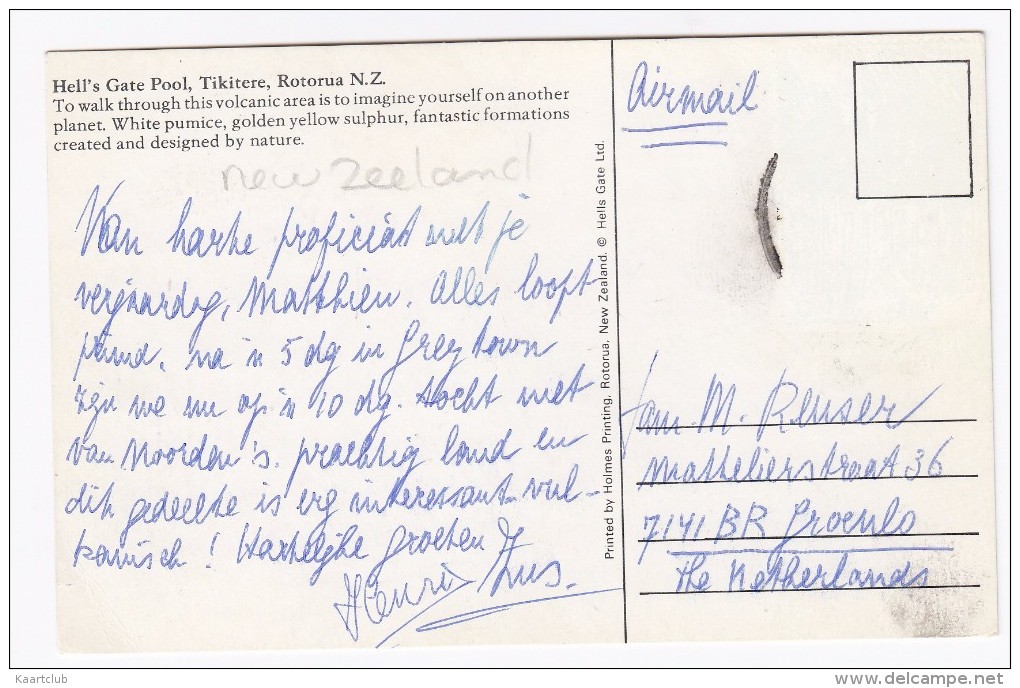 Hell's Gate Pool, Tikitere, Rotorua N.Z.
To walk through this volcanic area is to imagine yourself on another
planet. White pumice, golden yellow sulphur, fantastic formations
created and designed by nature.
new zeeland
Van harte proficiat met je
verjaardag, Matthieu. Alles loopt
prima, na 'n 5 dg in Greytown
zijn we nu op 'n 10 dg. tocht met
van Noorden's. prachtig land en
dit gedeelte is erg interessant-vul-
kanisch! Hartelijke groeten
Henri Zus.
Printed by Holmes Printing, Rotorua, New Zealand. © Hells Gate Ltd.
Airmail
Fam. M. Reuser
Mattelierstraat 36
7141 BR Groenlo
The Netherlands
Kaartclub
delcampe.net